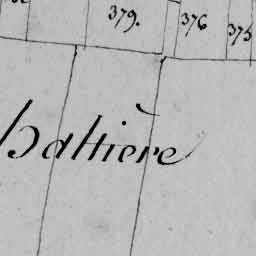 379. 376 375
batière